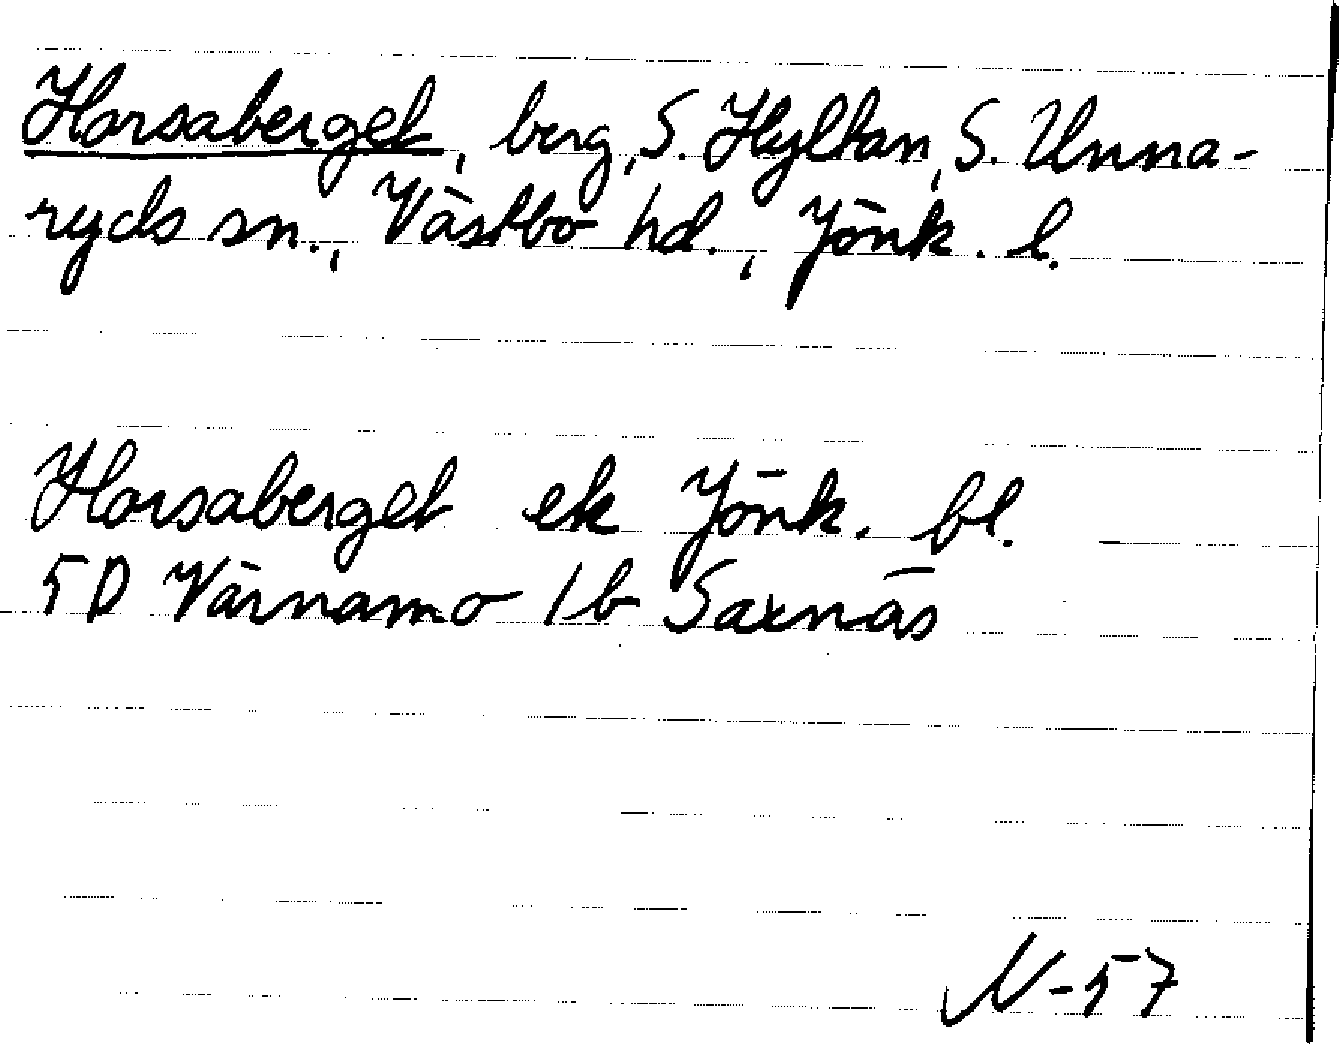 Horsaberget, berg, S. Hyltan, S. Unna-
ryds sn., Västbo hd., Jönk. l.
Horsaberget ek Jönk. bl.
5D Värnamo 1b Saxnäs
N-57